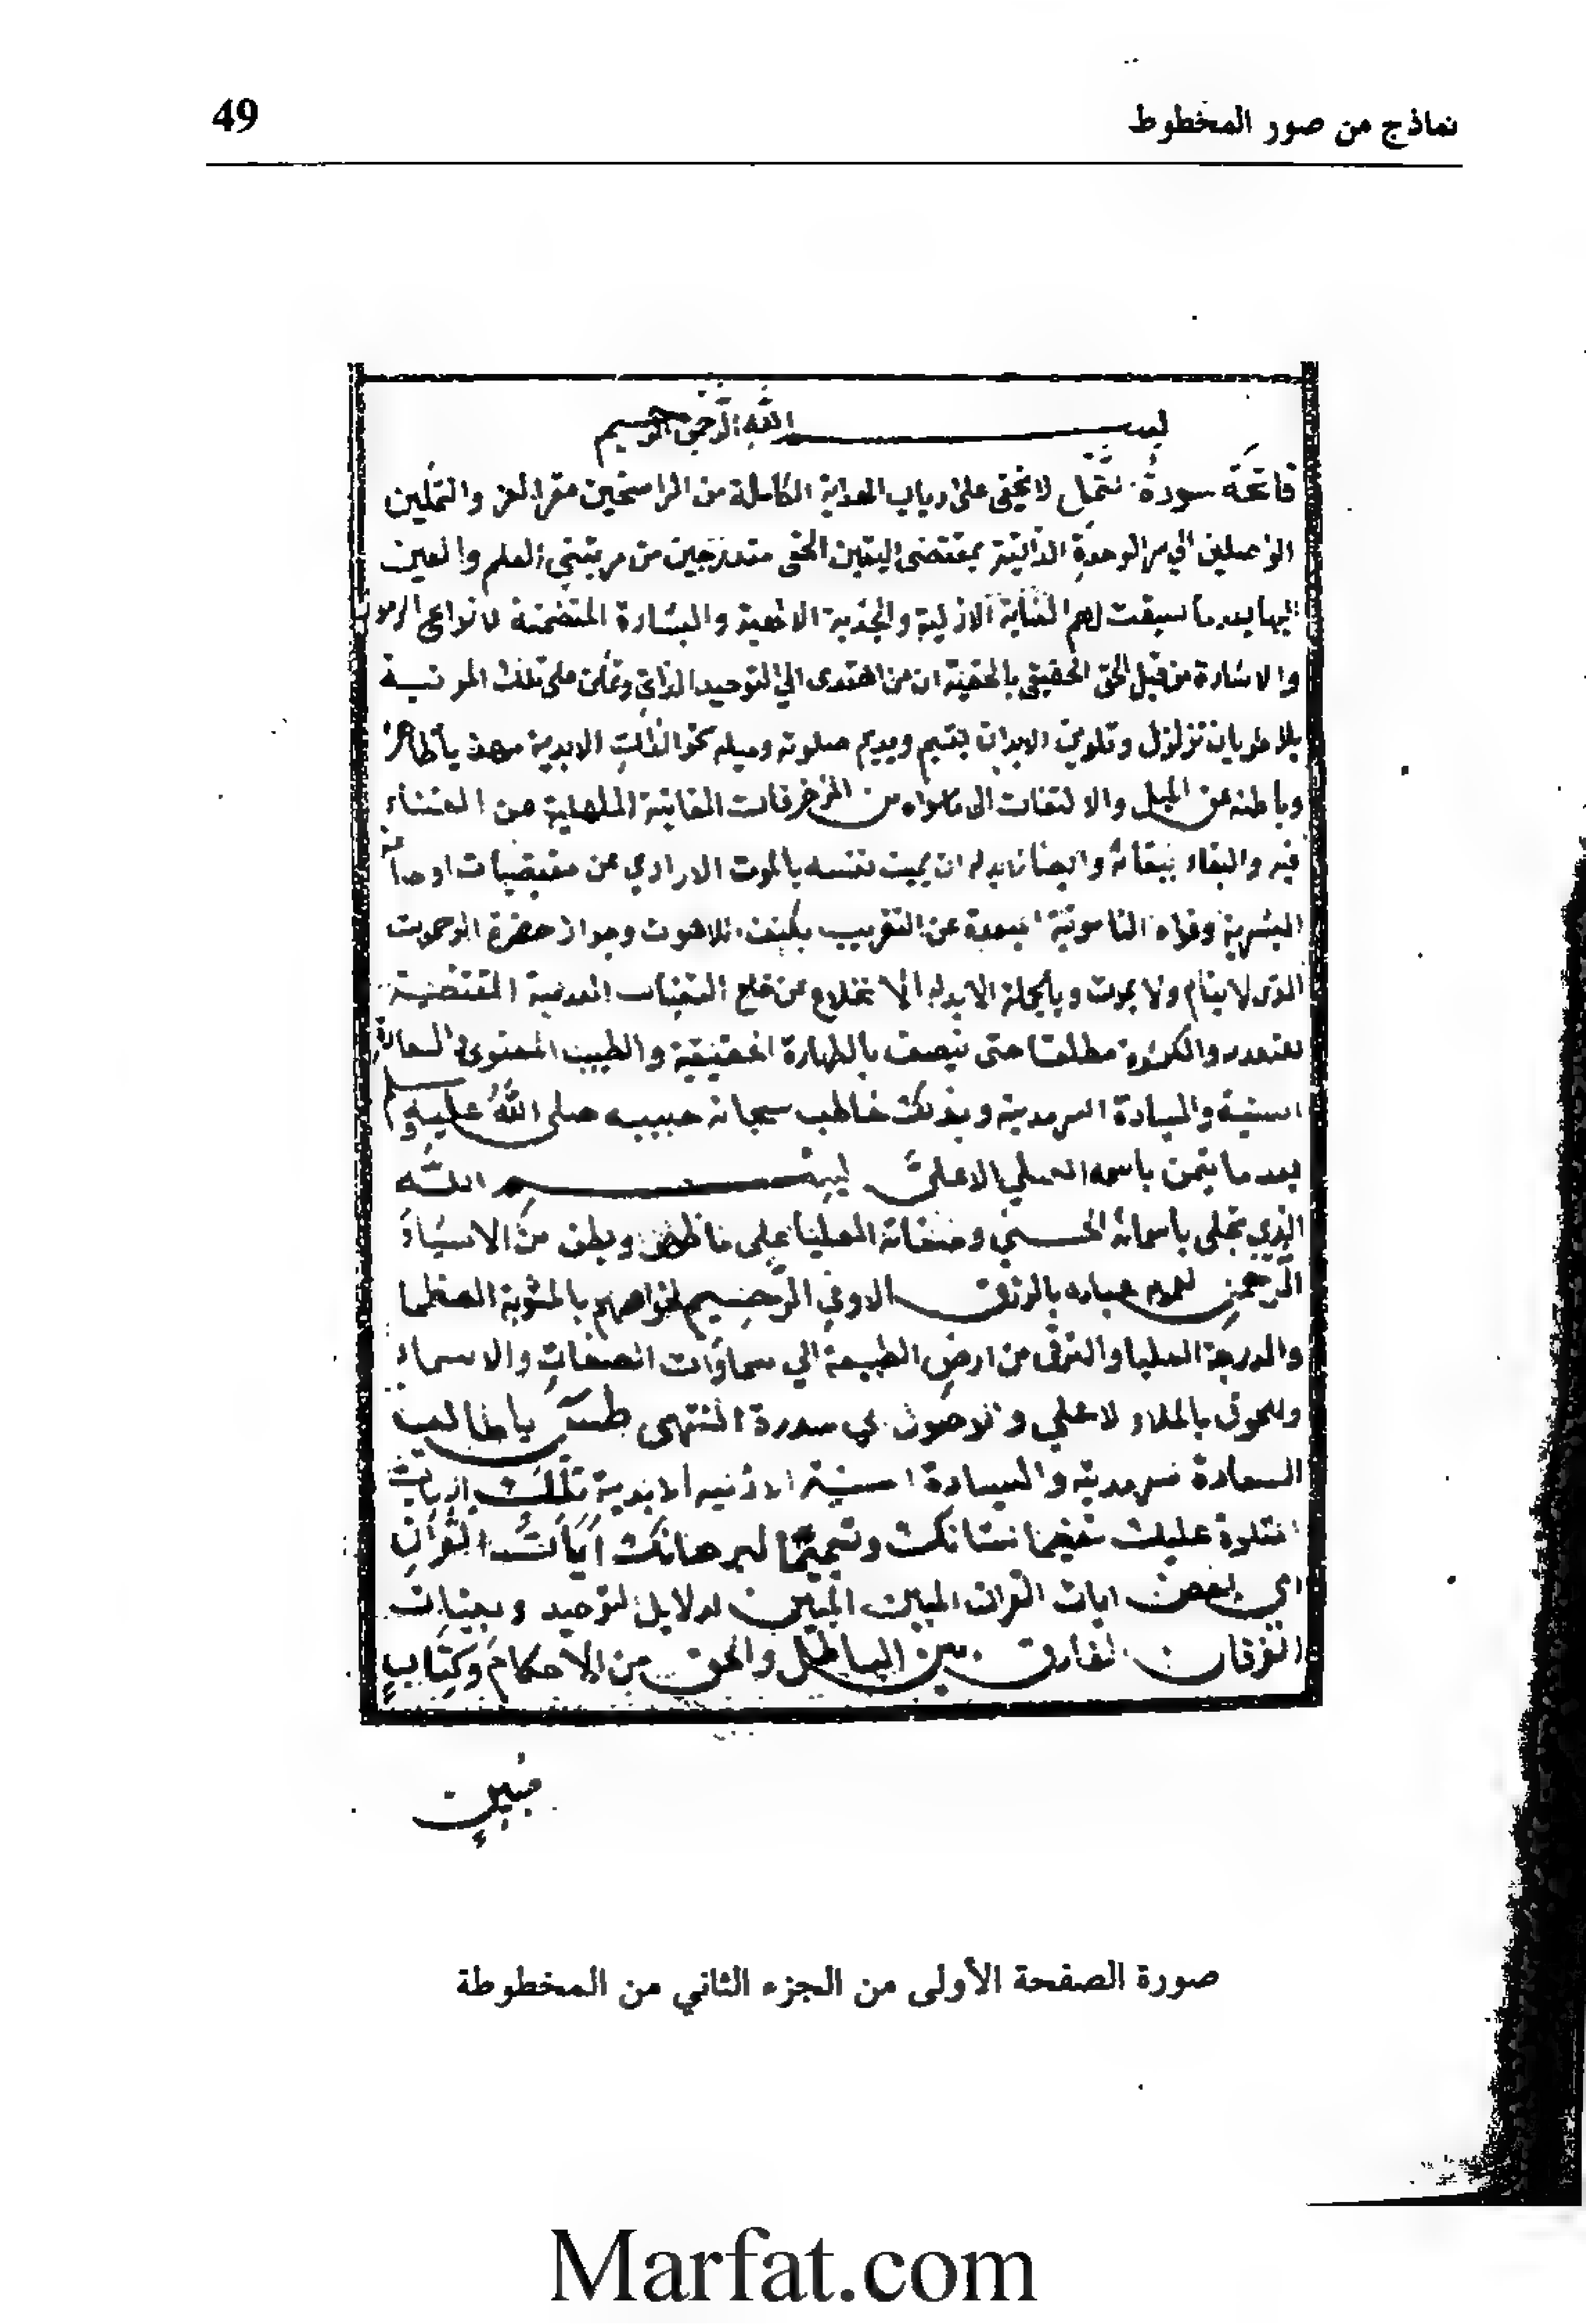 نماذج من صور المخطوط 49
بســـــم الله الرحمن الرحيم
فاتحة سورة النمل لا يخفى على ارباب العناية الكاملة من الراسخين مقر العز والتمكين
الواصلين الي سر الوحدة الذاتية بمقتضى اليقين الحقي متدرجين من مرتبتي العلم والعين
اليها بعد ما سبقت لهم العناية الازلية والجذبة الالهية والبشارة المتضمنة لانواع الرموز
والاشارة من قبل الحق الحقيقي بالحقية ان من اهتدى الي التوحيد الذاتي وتمكن على تلك المرتبة
بلا طريان تزلزل وتلوين لابد ان يقيم ويديم صلوته وميله نحو الذات الابدية بظاهره
وباطنه عن الميل والالتفات الى ما سواه من المزخرفات الفانية الملهية عن الفناء
فيه والبقاء ببقائه وايضا لابد له ان يميت نفسه بالموت الارادي عن مقتضيات اوصاف
البشرية وقواه الناسوتية المبعدة عن التقرب بكنف اللاهوت وجوار حضرة الرحموت
الذي لا ينام ولا يموت وبالجملة لابد له الانخلاع عن خلع التعينات العدمية المقتضية
للتعدد والكثرة مطلقا حتى يتصف بالطهارة الحقيقية والطيب المعنوي السعادة
السنية والسيادة السرمدية وبذلك خاطب سبحانه حبيبه صلى الله عليه وسلم
بعد ما تيمن باسمه العلي الاعلى بســـــم الله
الذي تجلى باسمائه الحسنى وصفاته العليا على ما ظهر وبطن من الاشياء
الرحمن لعموم عباده بالرزق الاوفي الرحيم لخواصهم بالمثوبة العظما
والدرجة العليا والترقي من ارض الطبيعة الي سماوات الصفات والاسماء
واللحوق بالملاء الاعلي والوصول الي سدرة المنتهى طس يا طالب
السعادة السرمدية والسيادة السنية الازلية الابدية تلك الايات
المتلوة عليك تفخيما لشانك وتتميما لبرهانك آيات القرآن
اي بعض ايات القران المبين المبين لدلايل التوحيد وبينات
الفرقان الفارق بين الباطل والحق من الاحكام وكتاب
مبين
صورة الصفحة الأولى من الجزء الثاني من المخطوطة
Marfat.com